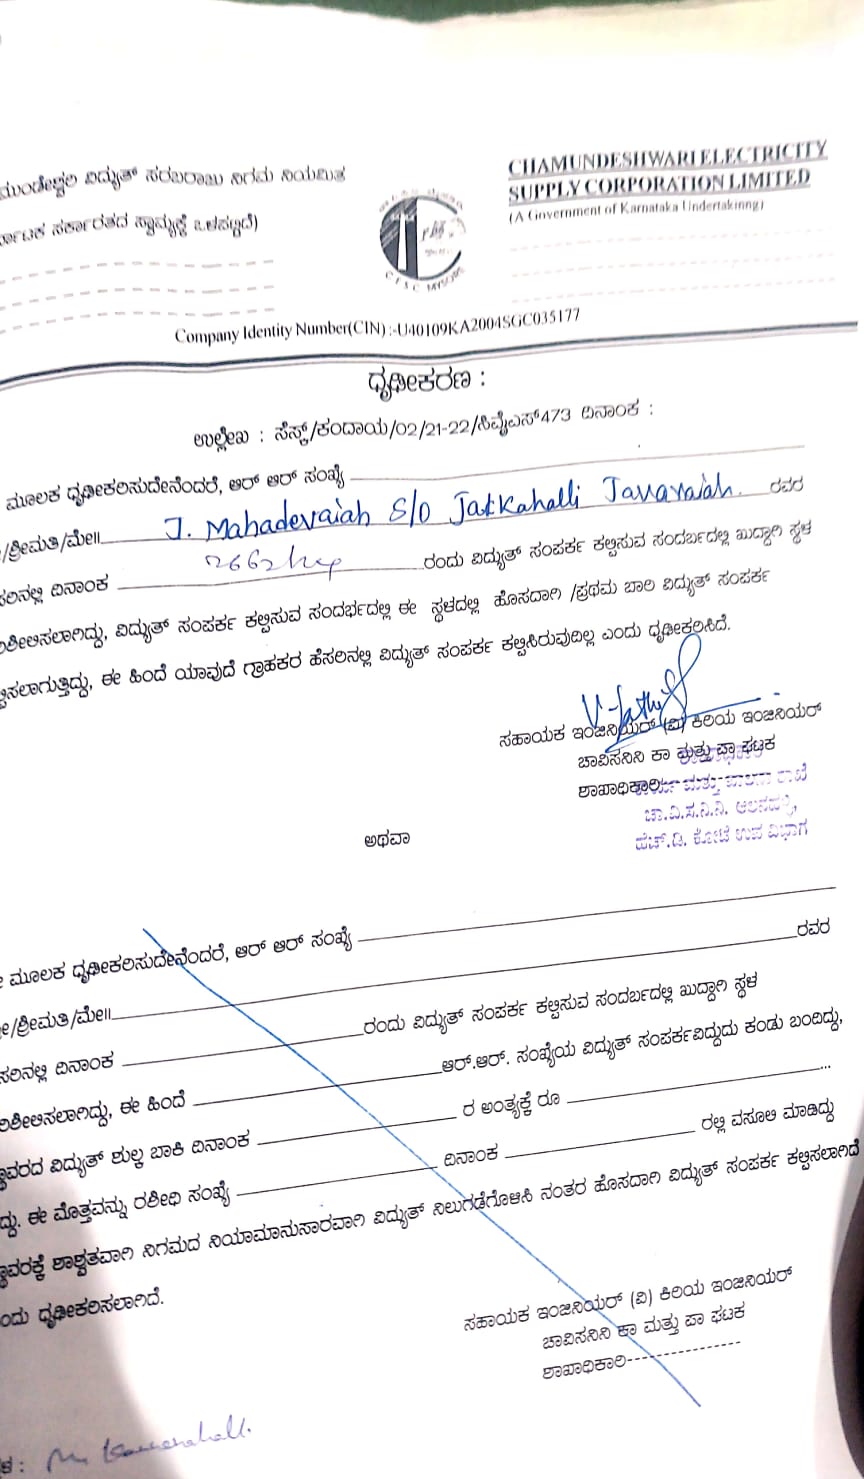 ಮುಂಡೇಶ್ವರಿ ವಿದ್ಯುತ್ ಸರಬರಾಜು ನಿಗಮ ನಿಯಮಿತ
ರ್ನಾಟಕ ಸರ್ಕಾರತದ ಸ್ವಾಮ್ಯಕ್ಕೆ ಒಳಪಟ್ಟಿದೆ)
CHAMUNDESHWARI ELECTRICITY
SUPPLY CORPORATION LIMITED
(A Government of Karnataka Undertakinng)
C E S C MYSORE
Company Identity Number(CIN) :-U40109KA2004SGC035177
ಧೃಢೀಕರಣ :
ಉಲ್ಲೇಖ : ಸೆಸ್ಕ್/ಕಂದಾಯ/02/21-22/ಸಿವೈಎಸ್473 ದಿನಾಂಕ :
ಮೂಲಕ ಧೃಢೀಕರಿಸುದೇನೆಂದರೆ, ಆರ್ ಆರ್ ಸಂಖ್ಯೆ
/ಶ್ರೀಮತಿ/ಮೇ॥ J. Mahadevaiah S/O Jakkahalli Javaraiah ರವರ
ಸರಿನಲ್ಲಿ ದಿನಾಂಕ ರಂದು ವಿದ್ಯುತ್ ಸಂಪರ್ಕ ಕಲ್ಪಿಸುವ ಸಂದರ್ಬದಲ್ಲಿ ಖುದ್ದಾಗಿ ಸ್ಥಳ
ಶೀಲಿಸಲಾಗಿದ್ದು, ವಿದ್ಯುತ್ ಸಂಪರ್ಕ ಕಲ್ಪಿಸುವ ಸಂದರ್ಭದಲ್ಲಿ ಈ ಸ್ಥಳದಲ್ಲಿ ಹೊಸದಾಗಿ /ಪ್ರಥಮ ಬಾರಿ ವಿದ್ಯುತ್ ಸಂಪರ್ಕ
ಪಿಸಲಾಗುತ್ತಿದ್ದು, ಈ ಹಿಂದೆ ಯಾವುದೆ ಗ್ರಾಹಕರ ಹೆಸರಿನಲ್ಲಿ ವಿದ್ಯುತ್ ಸಂಪರ್ಕ ಕಲ್ಪಿಸಿರುವುದಿಲ್ಲ ಎಂದು ಧೃಢೀಕರಿಸಿದೆ.
ಸಹಾಯಕ ಇಂಜಿನಿಯರ್ (ವಿ) ಕಿರಿಯ ಇಂಜಿನಿಯರ್
ಚಾವಿಸನಿನಿ ಕಾ ಮತ್ತು ಪಾ ಘಟಕ
ಶಾಖಾಧಿಕಾರಿ
ಚಾ.ವಿ.ಸ.ನಿ.ನಿ.
ಹೆಚ್.ಡಿ. ಕೋಟೆ ಉಪ ವಿಭಾಗ
ಅಥವಾ
ಮೂಲಕ ಧೃಢೀಕರಿಸುದೇನೆಂದರೆ, ಆರ್ ಆರ್ ಸಂಖ್ಯೆ
/ಶ್ರೀಮತಿ/ಮೇ॥ ರವರ
ಸರಿನಲ್ಲಿ ದಿನಾಂಕ ರಂದು ವಿದ್ಯುತ್ ಸಂಪರ್ಕ ಕಲ್ಪಿಸುವ ಸಂದರ್ಬದಲ್ಲಿ ಖುದ್ದಾಗಿ ಸ್ಥಳ
ಶೀಲಿಸಲಾಗಿದ್ದು, ಈ ಹಿಂದೆ ಆರ್.ಆರ್. ಸಂಖ್ಯೆಯ ವಿದ್ಯುತ್ ಸಂಪರ್ಕವಿದ್ದುದು ಕಂಡು ಬಂದಿದ್ದು,
ಸ್ಥಾವರದ ವಿದ್ಯುತ್ ಶುಲ್ಕ ಬಾಕಿ ದಿನಾಂಕ ರ ಅಂತ್ಯಕ್ಕೆ ರೂ ...
ದ್ದು. ಈ ಮೊತ್ತವನ್ನು ರಶೀಧಿ ಸಂಖ್ಯೆ ದಿನಾಂಕ ರಲ್ಲಿ ವಸೂಲಿ ಮಾಡಿದ್ದು
ಸ್ಥಾವರಕ್ಕೆ ಶಾಶ್ವತವಾಗಿ ನಿಗಮದ ನಿಯಾಮಾನುಸಾರವಾಗಿ ವಿದ್ಯುತ್ ನಿಲುಗಡೆಗೊಳಿಸಿ ನಂತರ ಹೊಸದಾಗಿ ವಿದ್ಯುತ್ ಸಂಪರ್ಕ ಕಲ್ಪಿಸಲಾಗಿದೆ
ಂದು ಧೃಢೀಕರಿಸಲಾಗಿದೆ.
ಸಹಾಯಕ ಇಂಜಿನಿಯರ್ (ವಿ) ಕಿರಿಯ ಇಂಜಿನಿಯರ್
ಚಾವಿಸನಿನಿ ಕಾ ಮತ್ತು ಪಾ ಘಟಕ
ಶಾಖಾಧಿಕಾರಿ----------------
ಳ :